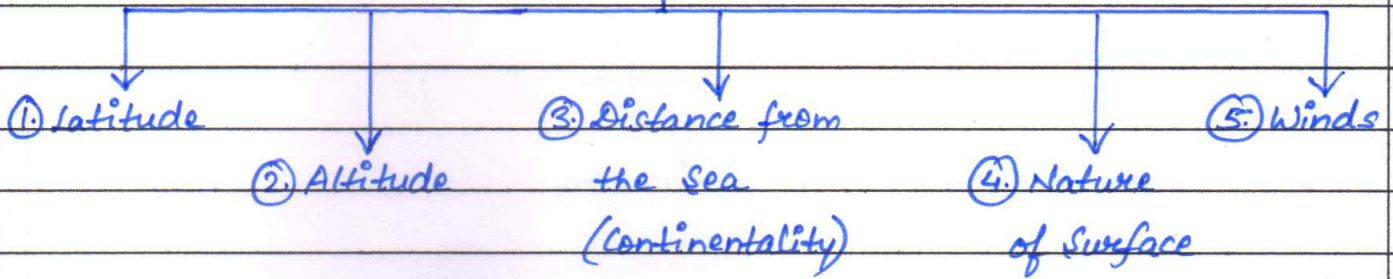 1. Latitude
2. Altitude
3. Distance from
the sea
(Continentality)
4. Nature
of Surface
5. Winds